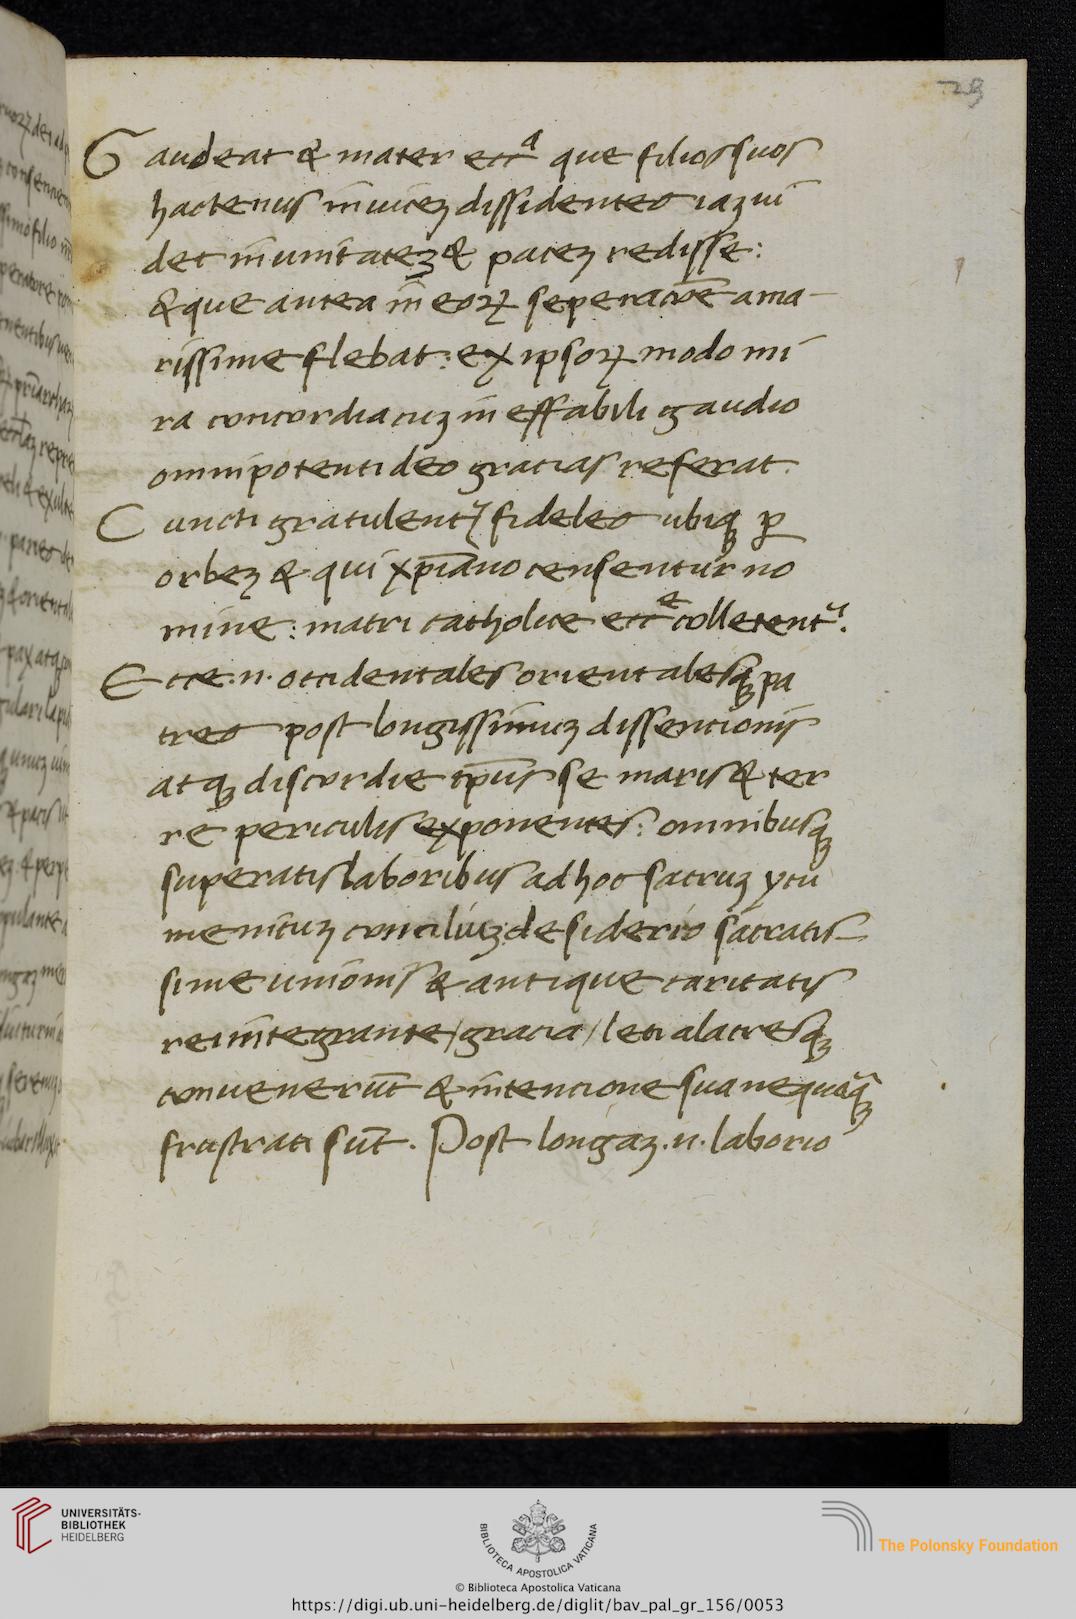 29
Gaudeat & mater eccᵃ que filios suos
hactenus inuiceȝ dissidentes iaȝ ui
det in unitateȝ & paceȝ redisse:
& que antea in eoꝝ seperacōe ama-
rissime flebat: ex ipsoꝝ modo mi
ra concordia cuȝ ineffabili gaudio
omnipotenti deo gracias referat.
Cuncti gratulentʳ fideles ubiqꝫ ꝑ
orbeȝ & qui xp̄iano censentur no
mine: matri catholice eccᵉ colletentʳ.
Ecce .n. occidentales orientalesqꝫ pa
tres post longissimuȝ dissencionis
atqꝫ discordie tp̄us se maris & ter
re periculis exponentes: omnibusqꝫ
superatis laboribus ad hoc sacruȝ ycu
menicuȝ conciliuȝ desiderio sacratis-
sime unionis & antique caritatis
reintegrante / gracia / leti alacresqꝫ
conuenerūt & intencione sua nequaq̄ꝫ
frustrati sūt. Post longaȝ .n. laborio
UNIVERSITÄTS-
BIBLIOTHEK
HEIDELBERG
BIBLIOTECA APOSTOLICA VATICANA
The Polonsky Foundation
© Biblioteca Apostolica Vaticana
https://digi.ub.uni-heidelberg.de/diglit/bav_pal_gr_156/0053